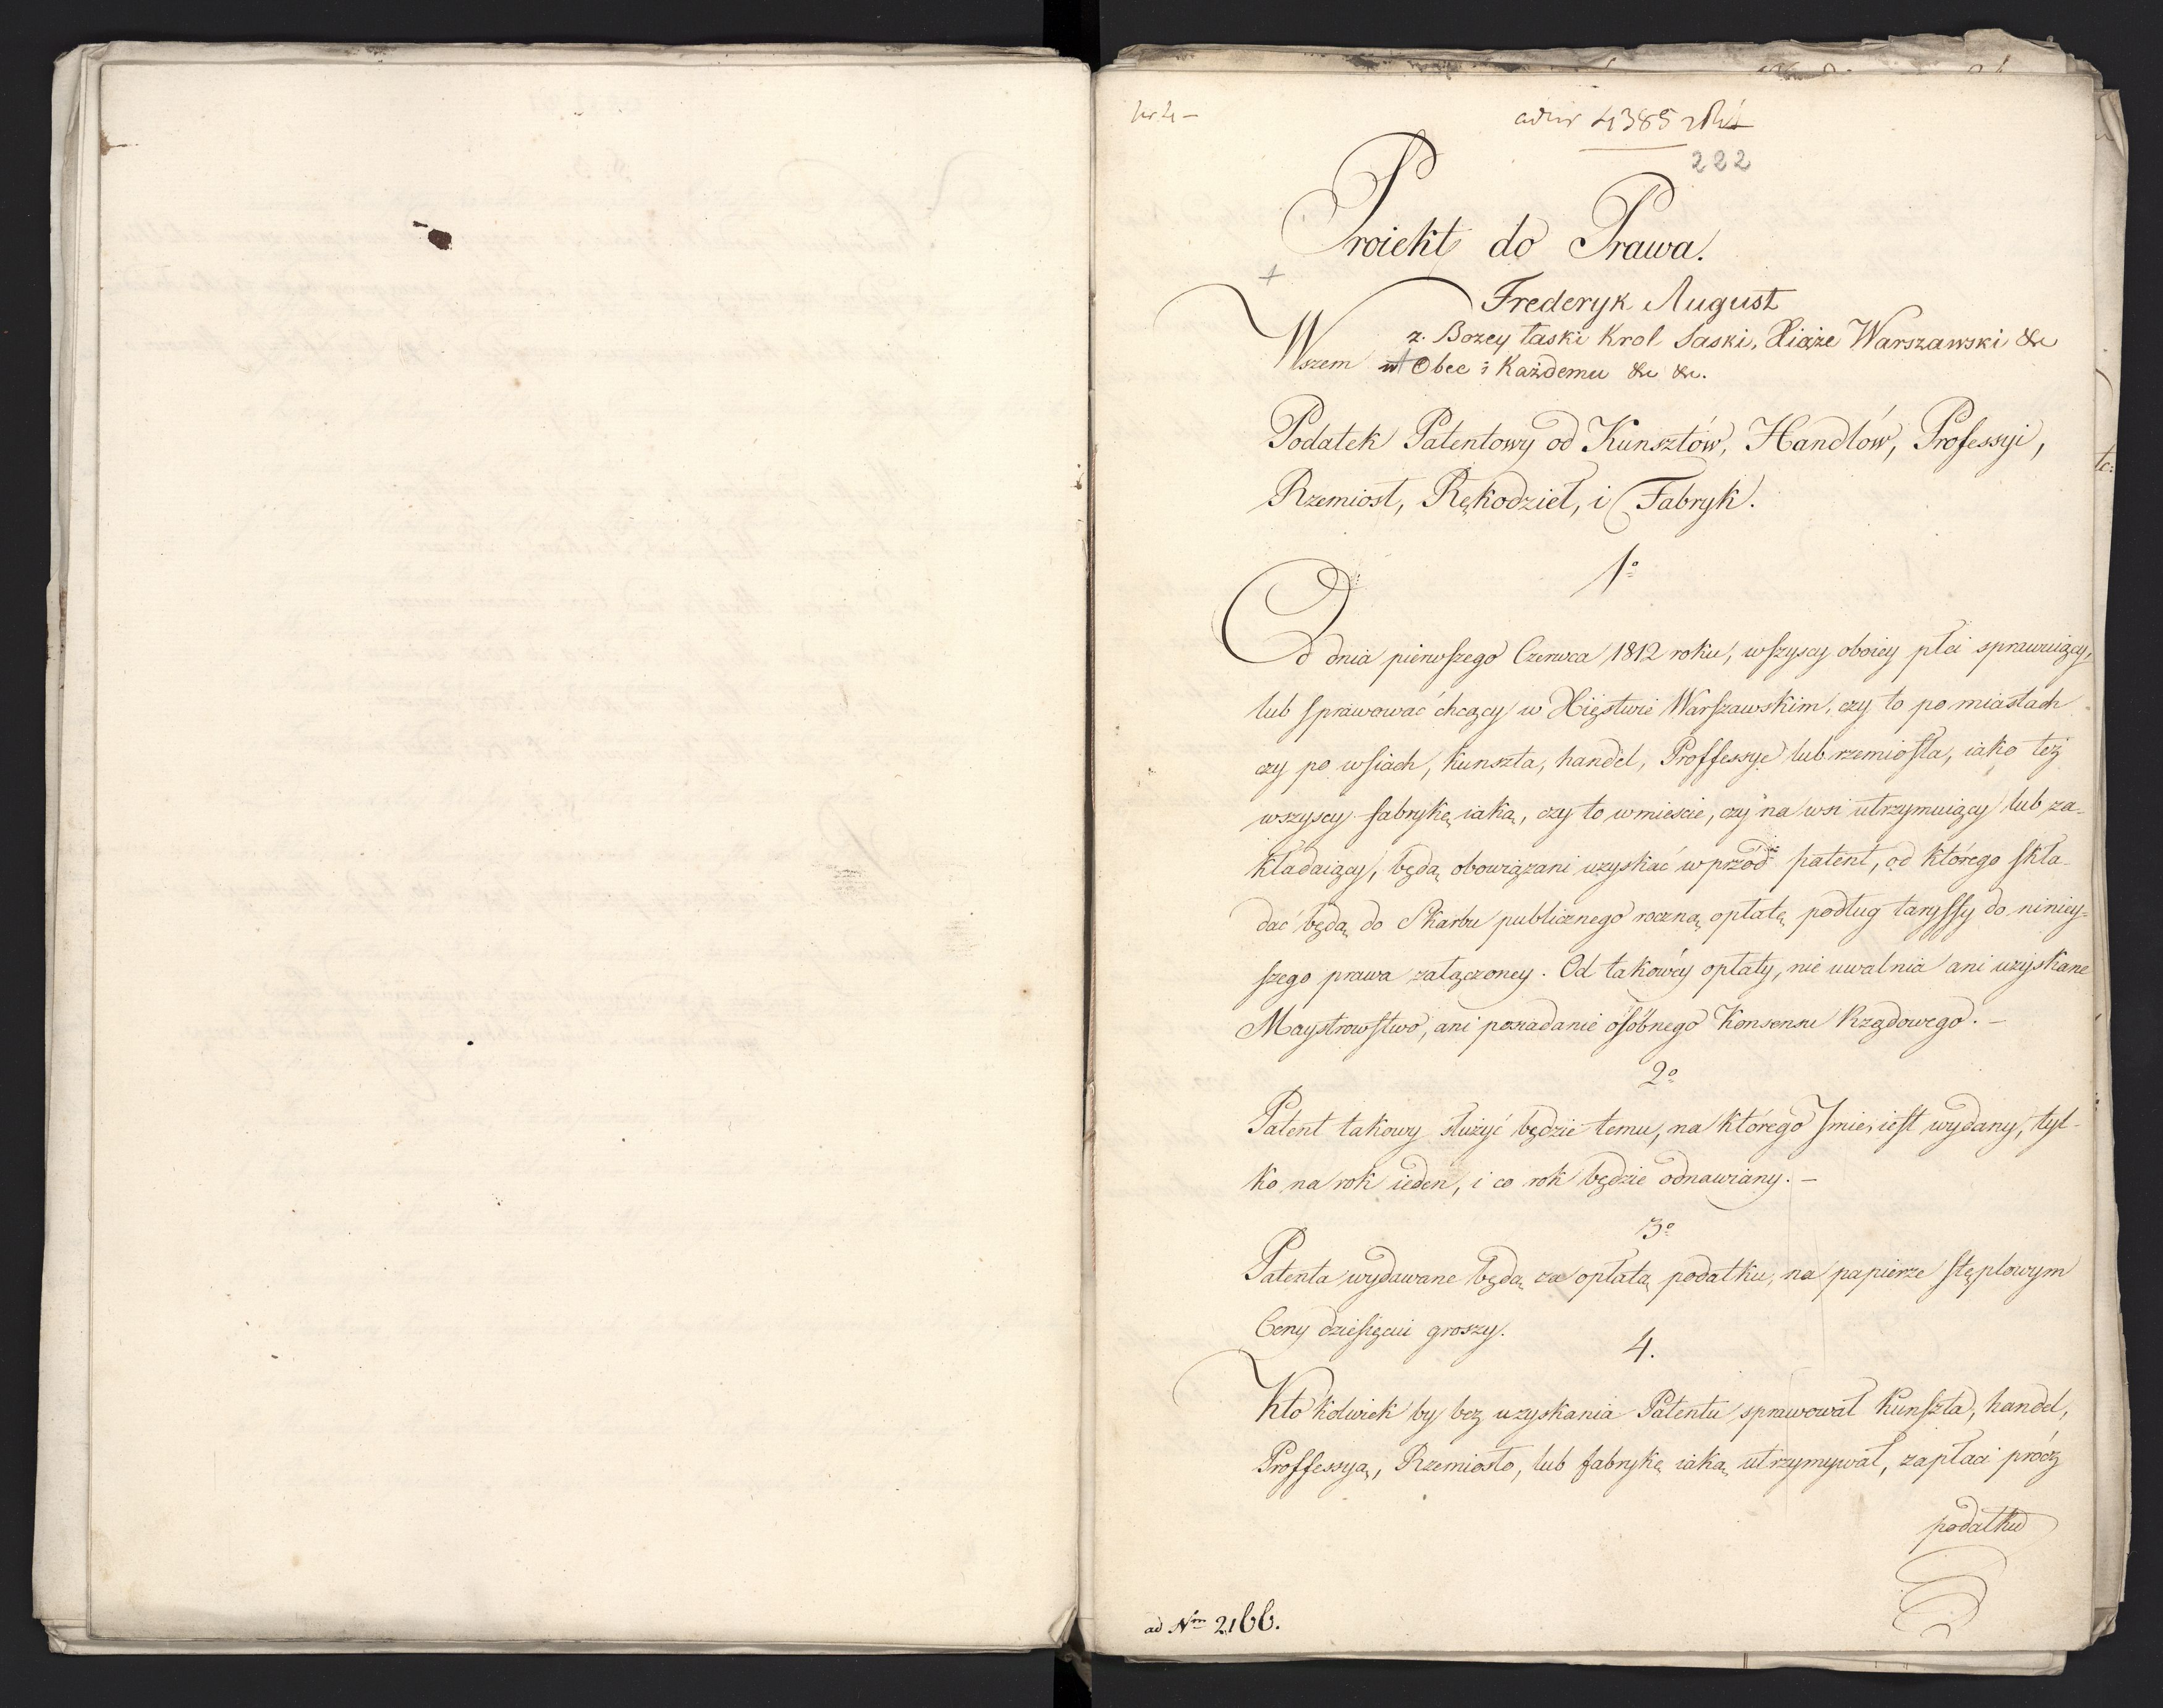 ad nr 4385
222
Proiekt do Prawa.
Frederyk August
z. Bozey łaski Krol Saski, Xiąże Warszawski &c
Wszem w Obec i Każdemu &c &c.
Podatek Patentowy od Kunsztów, Handlów, Professyi,
Rzemiosł, Rękodzieł, i Fabryk.
1º
Od dnia pierwszego Czerwca 1812 roku, wszyscy oboiey płci sprawuiący,
lub sprawować chcący w Xięstwie Warszawskim, czy to po miastach
czy po wsiach, kunszta, handel, Proffessye lub rzemiosła, iako też
wszyscy fabrykę iaką, czy to w mieście, czy na wsi utrzymuiący lub za-
kładaiący, będą obowiązani uzyskać wprzód patent, od którego skła-
dać będą do Skarbu publicznego roczną opłatę podług taryffy do niniey-
szego prawa załączoney. Od takowéy opłaty, nie uwalnia ani uzyskane
Maystrowstwo, ani posiadanie osóbnego Konsensu Rządowego. –
2º
Patent takowy służyć będzie temu, na którego Jmie, iest wydany, tyl-
ko na rok ieden, i co rok będzie odnawiany. –
3º
Patenta wydawane będą za opłatą podatku, na papierze stęplowym
Ceny dziesięciu groszy.
4.
Kto kolwiek by bez uzyskania Patentu sprawował Kunszta, handel,
Proffessyą, Rzemiosło, lub fabrykę iaką utrzymywał, zapłaci prócz
podatku
ad Nm 2166.